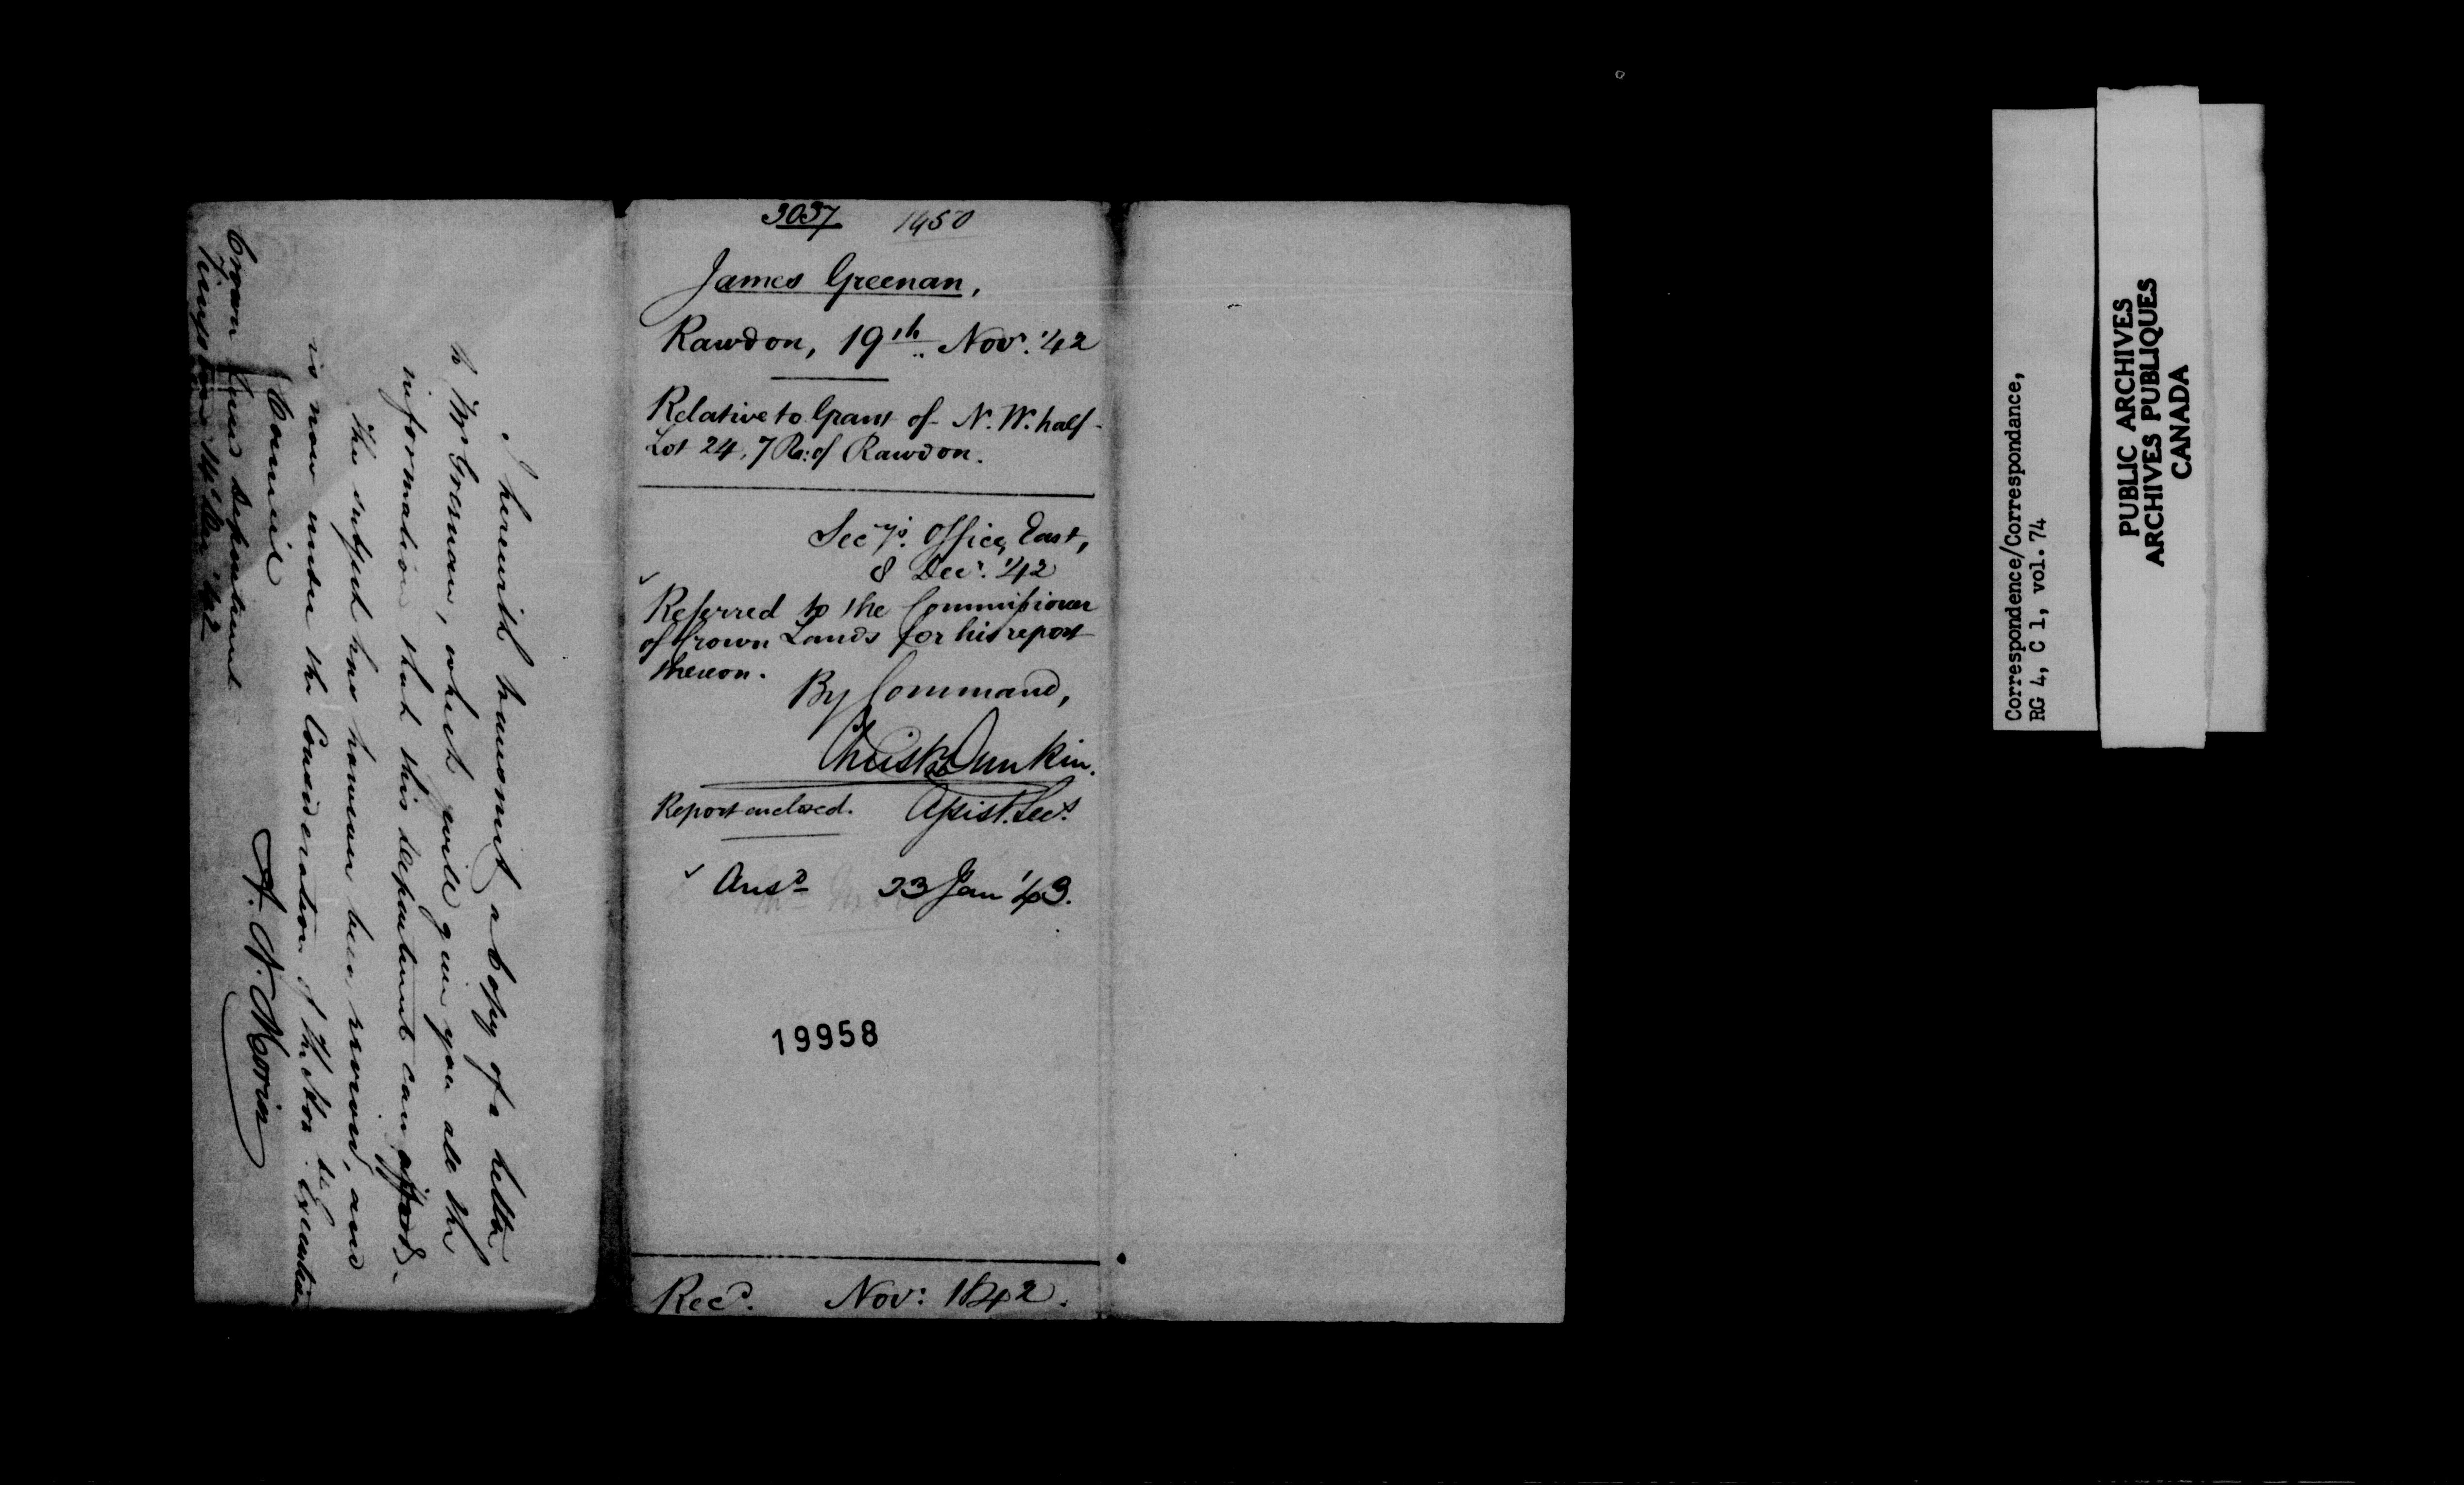 I herewith transmit a Copy of a letter
to Mr Greenan, which will give you all the
information that this department can afford.
The subject has however been revived, and
is now under the Consideration of the Hon. the Executive
Council
A. N. Morin
Crown Land Department
Kingston 14 Dec '42
3037 1450
James Greenan,
Rawdon, 19th Nov. '42
Relative to Grant of N. W. half
Lot 24, 7 R: of Rawdon.
Secy's. Office, East,
8 Decr. '42
Referred to the Commissioner
of Crown Lands for his report
thereon.
By Command,
Christr Dunkin.
Assist. Secy.
Report enclosed.
Ansd 23 Jan '43.
19958
Recd. Nov: 1842.
Correspondence/Correspondance,
RG 4, C 1, vol. 74
PUBLIC ARCHIVES
ARCHIVES PUBLIQUES
CANADA